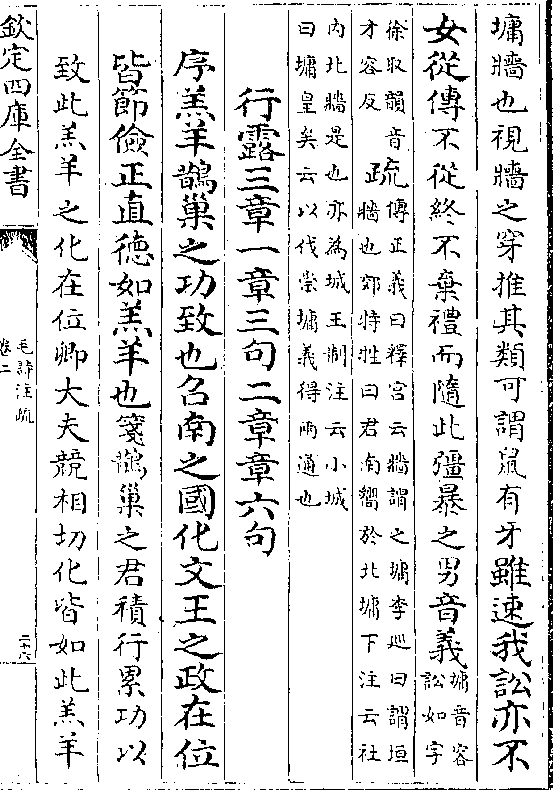 墉牆也視牆之穿推其類可謂鼠有牙雖速我訟亦不
女從傳不從終不棄禮而隨此彊暴之男音義墉音容
訟如字
徐取韻音
才容反
疏傳正義曰釋宮云牆謂之墉李巡曰謂垣
牆也郊特牲曰君南嚮於北墉下注云社
內北牆是也亦為城王制注云小城
曰墉皇矣云以伐崇墉義得兩通也
行露三章一章三句二章章六句
序羔羊鵲巢之功致也召南之國化文王之政在位
皆節儉正直徳如羔羊也箋鵲巢之君積行累功以
致此羔羊之化在位卿大夫競相切化皆如此羔羊
欽定四庫全書
毛詩注疏
卷二
二十六